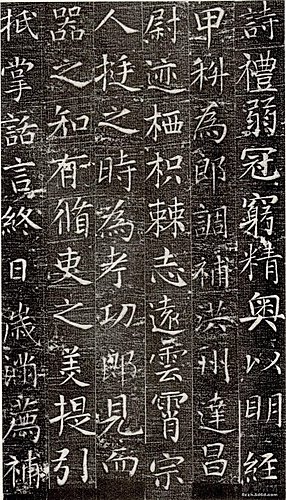 詩禮弱冠窮精奥以明經
甲科為郎調補洪州達昌
尉迹栖枳棘志遠雲霄宗
人挺之時為考功郎見而
器之知有脩吏之美提引
抵掌話言終日歲滿薦補
BzzhArt58.com